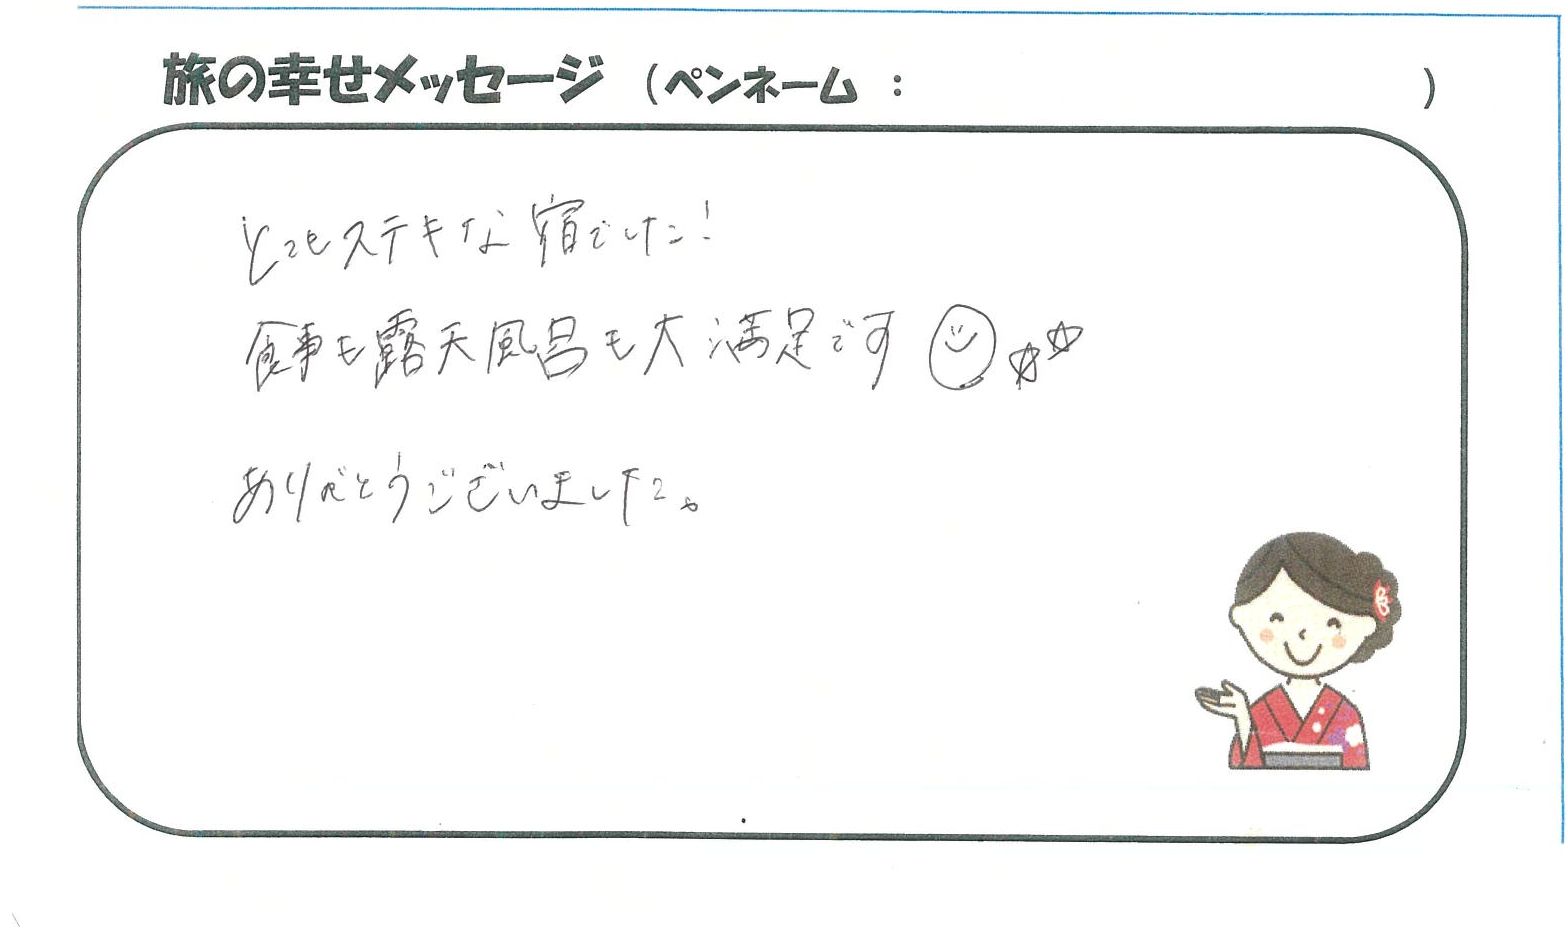 旅の幸せメッセージ (ペンネーム : )
とってもステキな宿でした!
食事も露天風呂も大満足です
ありがとうございました。